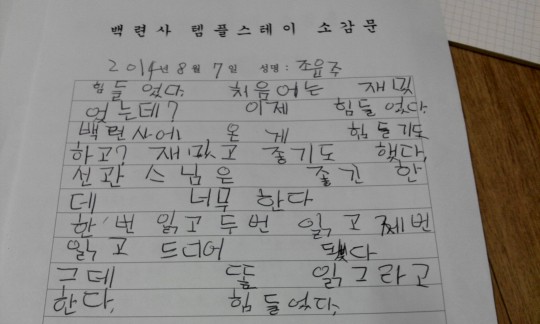 백련사 템플스테이 소감문
2014년 8월 7일 성명 : 조윤주
힘들었다. 처음에는 재밌
었는데? 이제 힘들었다.
백련사에 온 게 힘들기도
하고? 재밌고 좋기도 했다.
선관 스님은 좋긴 한
데 너무 한다
한번 읽고 두번 읽고 쩨번
읽고 드디어 됐다
근데 또 읽그라고
한다. 힘들었다.